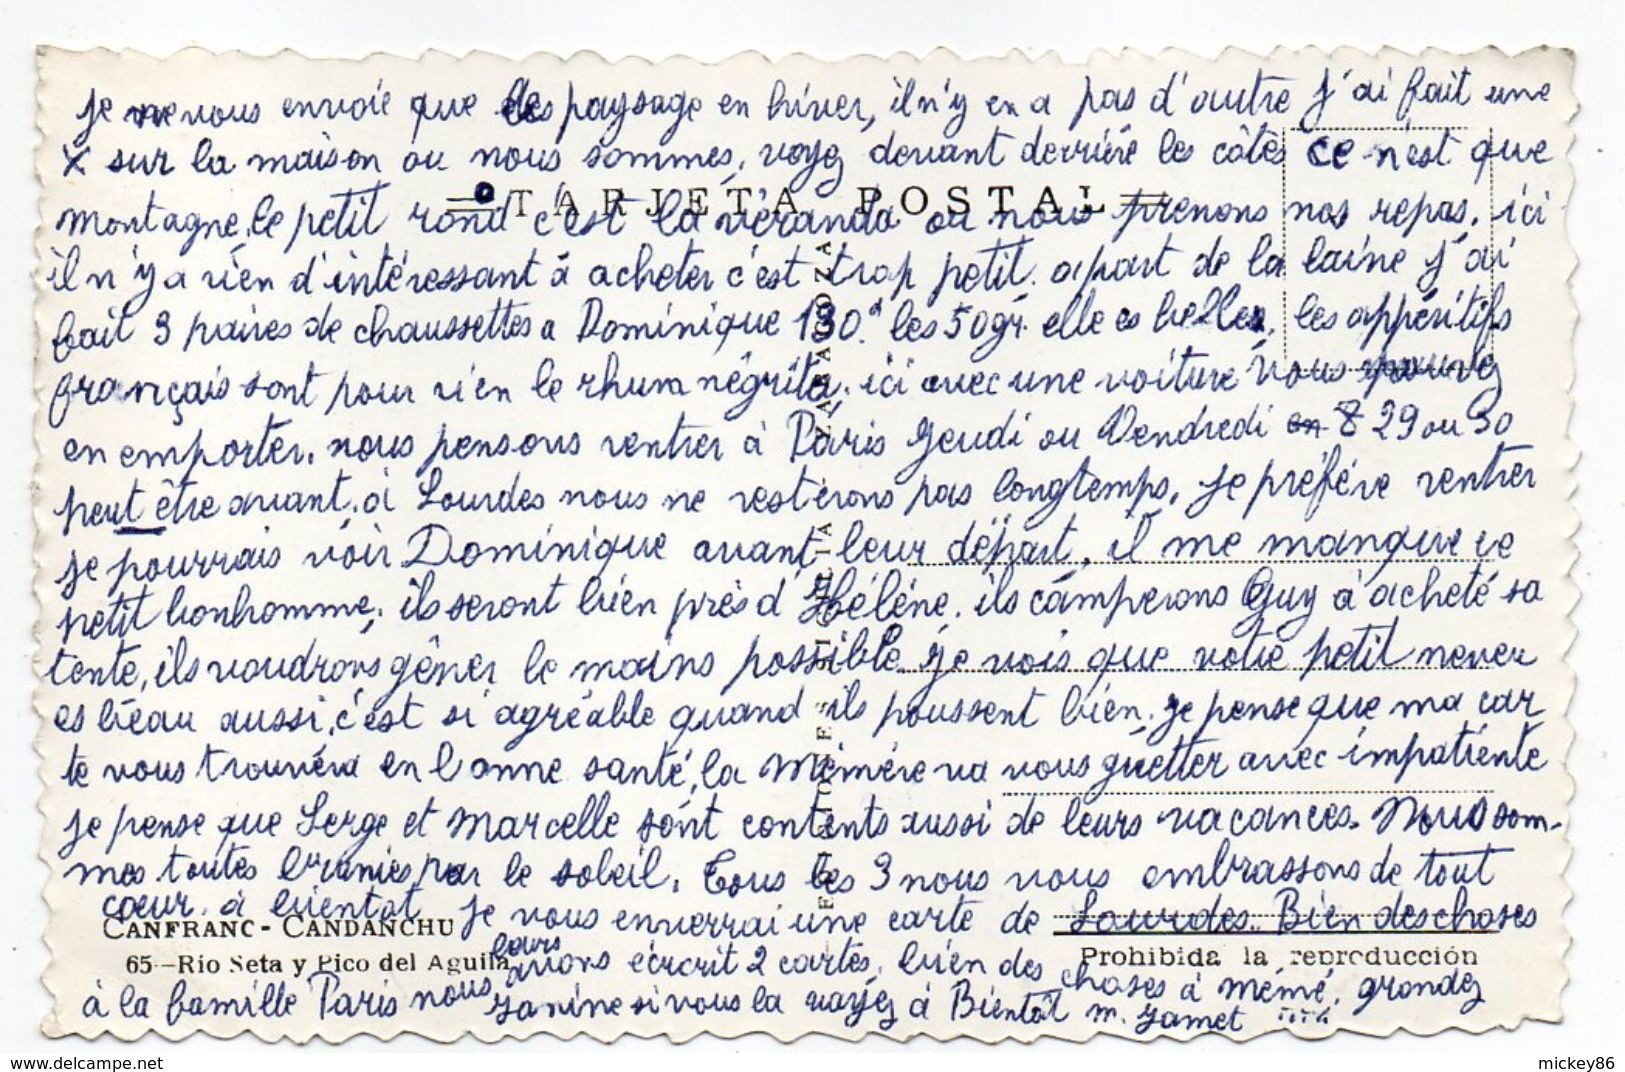 je ne vous envoie que des paysage en hiver, il n'y en a pas d'autre j'ai fait une
x sur la maison ou nous sommes, voyez devant derrière les côtés ce n'est que
TARJETA POSTAL
montagne, le petit rond c'est la véranda ou nous prenons nos repas, ici
il n'y a rien d'intéressant à acheter c'est trop petit. apart de la laine j'ai
fait 3 paires de chaussettes a Dominique 130. les 50gr. elle es belle, les appéritifs
français sont pour rien le rhum négrita, ici avec une voiture vous pouvez
en emporter. nous pensons rentrer à Paris Jeudi ou Vendredi 29 ou 30
peut être avant, à Lourdes nous ne resterons pas longtemps, je préfére rentrer
je pourrais voir Dominique avant leur départ, il me manque ce
petit bonhomme, ils seront bien près d'Héléne. ils camperons Guy à acheté sa
tente, ils voudrons gêner le moins possible je vois que votre petit neveu
es beau aussi, c'est si agréable quand ils poussent bien. je pense que ma car
te vous trouvéra en bonne santé, la Mémére va vous guetter avec impatiente
je pense que Serge et Marcelle sont contents aussi de leurs vacances. Nous som-
mes toutes brunies par le soleil. Tous les 3 nous vous embrassons de tout
coeur. à bientot je vous enverrai une carte de Lourdes. Bien des choses
CANFRANC - CANDANCHU
65 - Rio Seta y Pico del Aguila
Prohibida la reproducción
à la famille Paris nous leurs avons écrit 2 cartes. bien des choses à mémé. grondez
Janine si vous la voyez à Bientôt M. Jamet
ZARAGOZA
mickey86